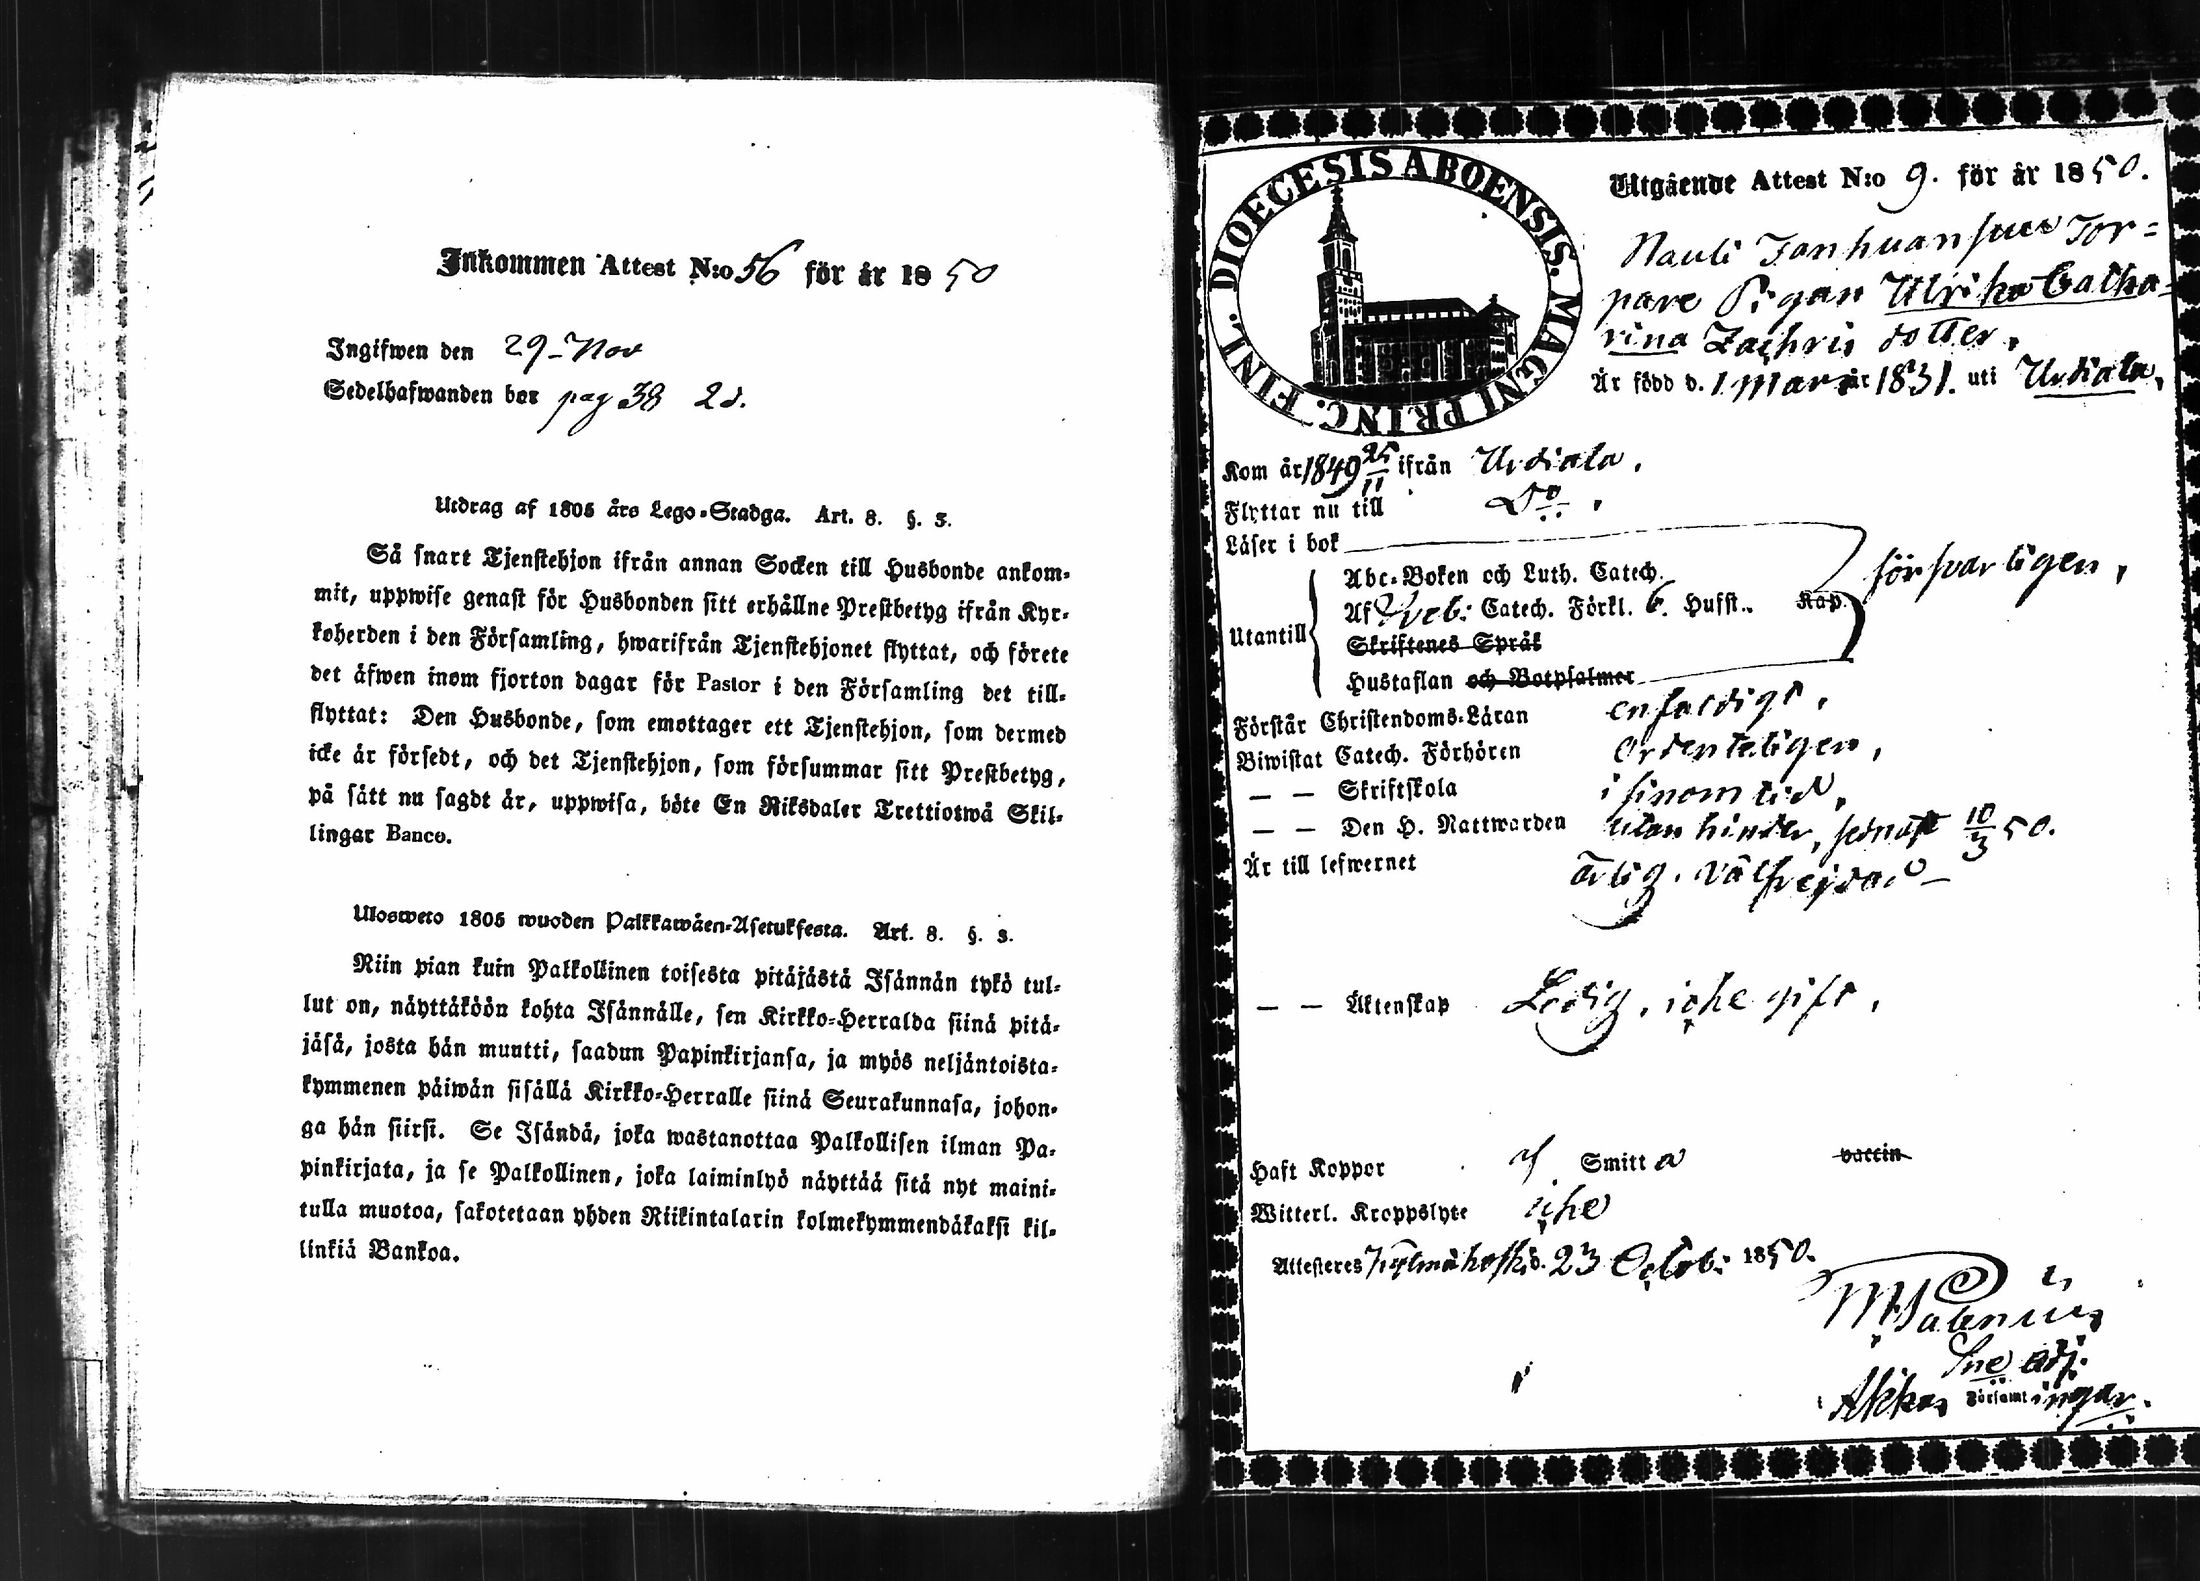 Inkommen Attest N:o 56 för år 1850
Ingifwen den 29 Nov
Sedelhafwanden bor pag 38 2d.
Utdrag af 1805 års Lego-Stadga. Art. 8. §. 3.
Så snart Tjenstehjon ifrån annan Socken till Husbonde ankom-
mit, uppwise genast för Husbonden sitt erhållne Prestbetyg ifrån Kyr-
koherden i den Församling, hwarifrån Tjenstehjonet flyttat, och förete
det äfwen inom fjorton dagar för Pastor i den Församling det till-
flyttat: Den Husbonde, som emottager ett Tjenstehjon, som dermed
icke är försedt, och det Tjenstehjon, som försummar sitt Prestbetyg,
på sätt nu sagdt är, uppwisa, böte En Riksdaler Trettiotwå Skil-
lingar Banco.
Ulosweto 1805 wuoden Palkkawäen-Asetuksesta. Art. 8. §. 3.
Niin pian kuin Palkollinen toisesta pitäjästä Isännän tykö tul-
lut on, näyttäköön kohta Isännälle, sen Kirkko-Herralda siinä pitä-
jäsä, josta hän muutti, saadun Papinkirjansa, ja myös neljäntoista-
kymmenen päiwän sisällä Kirkko-Herralle siinä Seurakunnasa, johon-
ga hän siirsi. Se Isändä, joka wastanottaa Palkollisen ilman Pa-
pinkirjata, ja se Palkollinen, joka laiminlyö näyttää sitä nyt maini-
tulla muotoa, sakotetaan yhden Riikintalarin kolmekymmendäkaksi kil-
linkiä Bankoa.
DIOECESIS ABOENSIS. MAGNI PRINC. FINL.
Utgående Attest N:o 9. för år 1850.
Tor=
pare Pigan Ulrika Catha=
rina Zachris dotter,
Är född d. 1 Mars år 1831. uti Urdiala,
Kom år 1849 25/11 ifrån Urdiala.
Flyttar nu till Do.
Läser i bok
försvarligen,
Utantill
Abc-Boken och Luth. Catech.
Af Sveb: Catech. Förkl. 6. Hufst. Kap.
Skriftenes Språk
Hustaflan och Botpsalmer
Förstår Christendoms-Läran enfaldigt,
Biwistat Catech. Förhören ordenteligen,
— — Skriftskola i sinom tid,
— — Den H. Nattwarden utan hinder, senast 10/3 50.
Är till lefwernet ärlig, välfrejdad —
— — Äktenskap Ledig, icke gift,
Haft Koppor af Smitta vaccin
Witterl. Kroppslyte icke
Attesteras Kylmäkoski d. 23 Octob: 1850.
adj.
Akkas Församlingar.